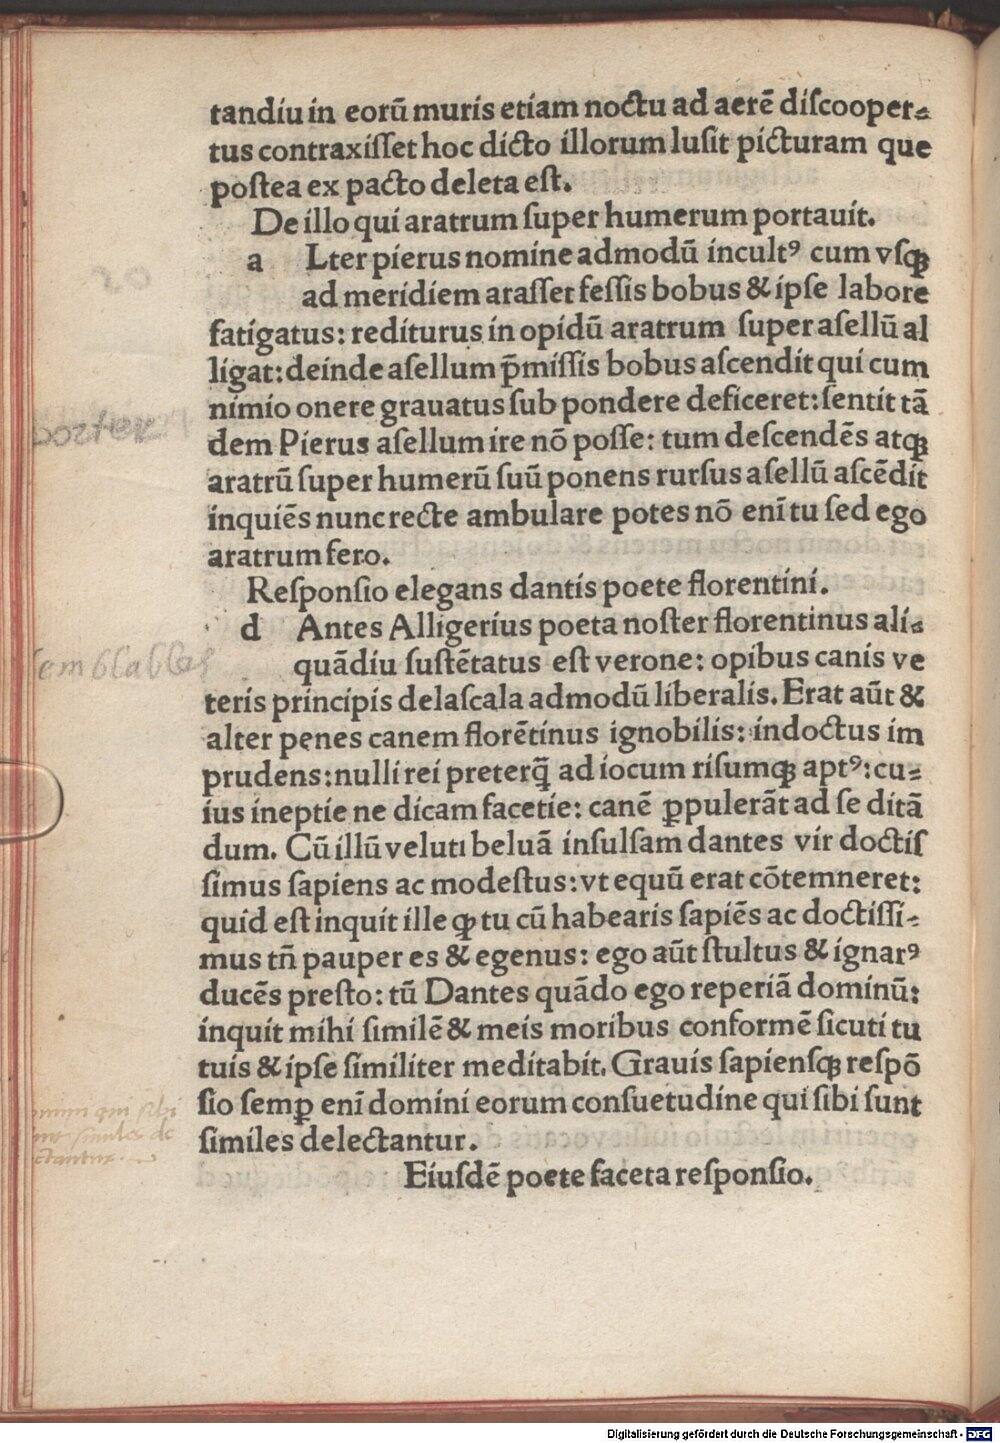 tandiu in eorū muris etiam noctu ad aerē diſcooper⸗
tus contraxiſſet hoc dicto illorum luſit picturam que
poſtea ex pacto deleta eſt.
De illo qui aratrum ſuper humerum portauit.
a Lter pierus nomine admodū incultꝰ cum vſqꝫ
ad meridiem araſſet feſſis bobus & ipſe labore
fatigatus: rediturus in opidū aratrum ſuper aſellū al
ligat: deinde aſellum p̄miſſis bobus aſcendit qui cum
nimio onere grauatus ſub pondere deficeret: ſentit tā
dem Pierus aſellum ire nō poſſe: tum deſcendēs atqꝫ
aratrū ſuper humerū ſuū ponens rurſus aſellū aſcēdit
inquiēs nunc recte ambulare potes nō enī tu ſed ego
aratrum fero.
Reſponſio elegans dantis poete florentini.
d Antes Alligerius poeta noſter florentinus ali⸗
quādiu ſuſtētatus eſt verone: opibus canis ve
teris principis delaſcala admodū liberalis. Erat aūt &
alter penes canem florētinus ignobilis: indoctus im
prudens: nulli rei preterq̄ ad iocum riſumqꝫ aptꝰ: cu⸗
ius ineptie ne dicam facetie: canē ꝓpulerāt ad ſe ditā
dum. Cū illū veluti beluā inſulſam dantes vir doctiſ
ſimus ſapiens ac modeſtus: vt equū erat cōtemneret:
quid eſt inquit ille ꝙ tu cū habearis ſapiēs ac doctiſſi⸗
mus tn̄ pauper es & egenus: ego aūt ſtultus & ignarꝰ
ducēs preſto: tū Dantes quādo ego reperiā dominū:
inquit mihi ſimilē & meis moribus conformē ſicuti tu
tuis & ipſe ſimiliter meditabit. Grauis ſapienſqꝫ reſpō
ſio ſemꝑ enī domini eorum conſuetudine qui ſibi ſunt
ſimiles delectantur.
Eiuſdē poete faceta reſponſio.
Digitalisierung gefördert durch die Deutsche Forschungsgemeinschaft - DFG